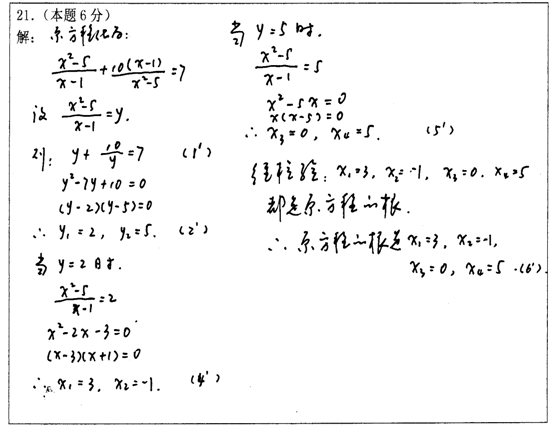 21.（本题6分）
解：原方程化为:
x²-5/x-1 + 10(x-1)/x²-5 = 7
设 x²-5/x-1 = y.
则: y + 10/y = 7 (1')
y²-7y+10=0
(y-2)(y-5)=0
∴ y₁=2, y₂=5. (2')
当 y=2 时.
x²-5/x-1 = 2
x²-2x-3=0
(x-3)(x+1)=0
∴ x₁=3, x₂=-1. (4')
当 y=5 时.
x²-5/x-1 = 5
x²-5x=0
x(x-5)=0
∴ x₃=0, x₄=5. (5')
经检验: x₁=3, x₂=-1, x₃=0. x₄=5
都是原方程的根.
∴ 原方程的根是 x₁=3, x₂=-1,
x₃=0, x₄=5 .(6')